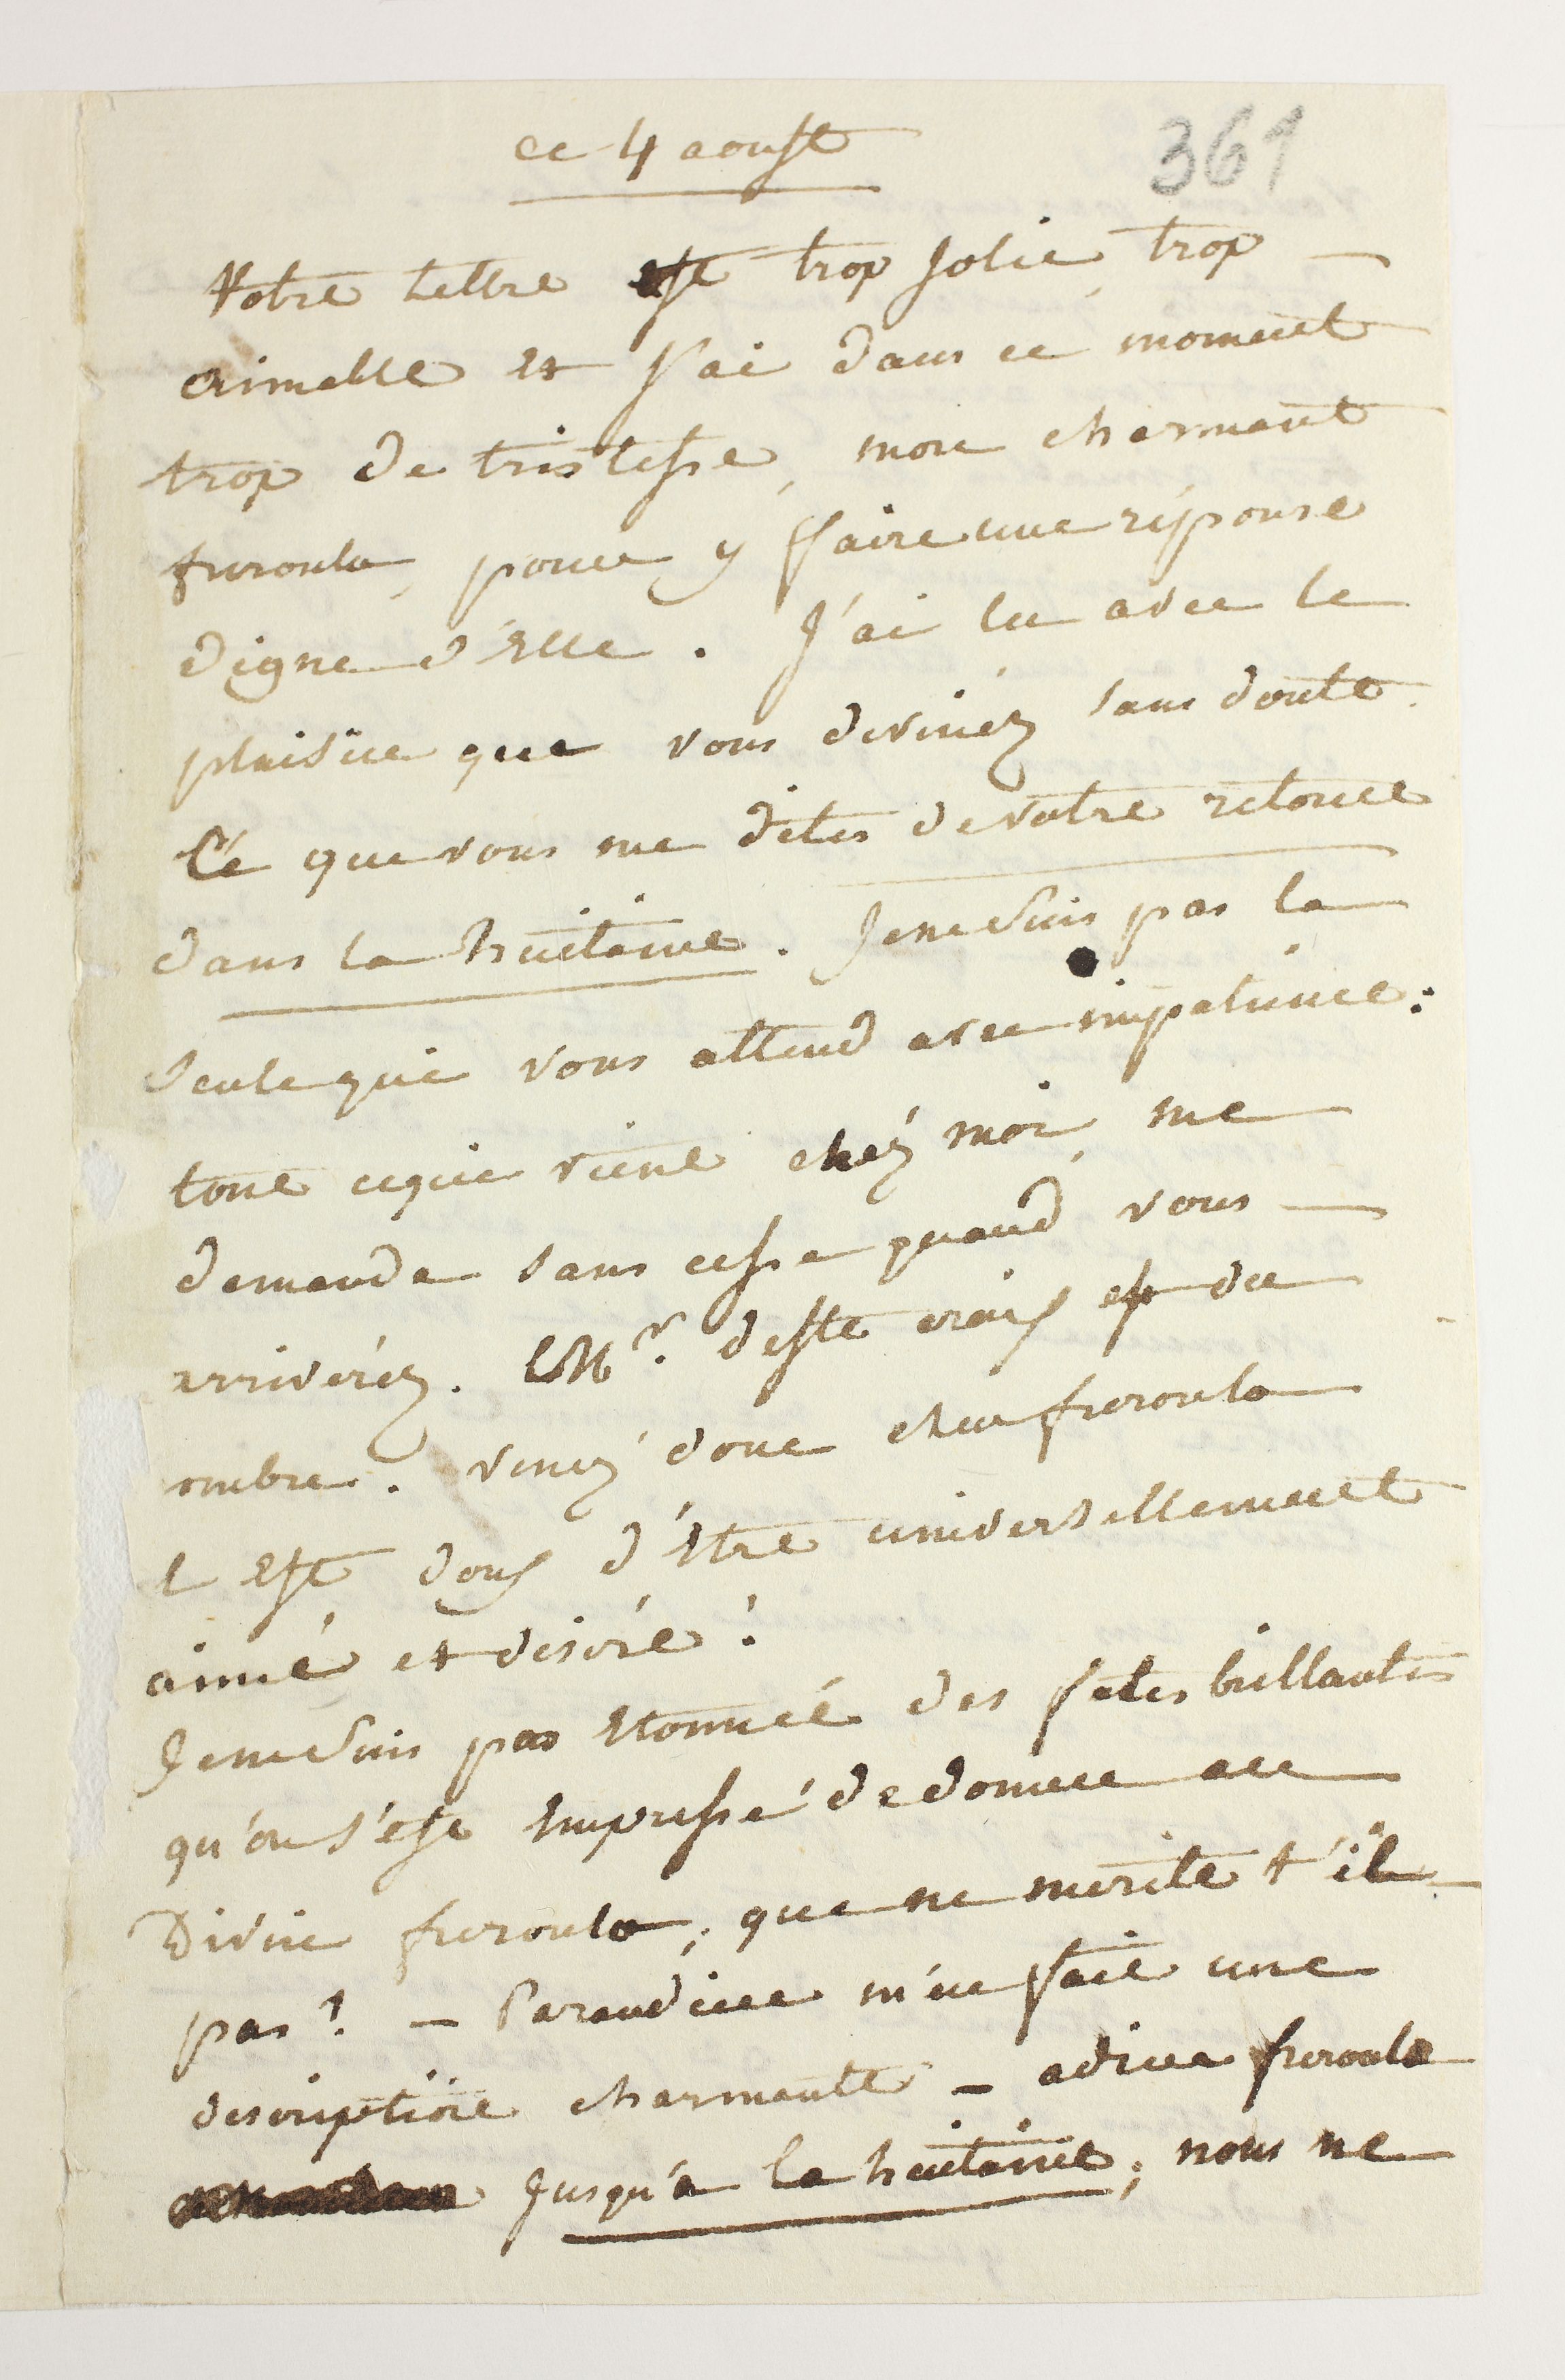 ce 4 aoust
361
Votre lettre est trop jolie, trop
aimable et j'ai dans ce moment
trop de tristesse, mon charmant
furoula, pour y faire une réponse
digne d'elle. J'ai lu avec le
plaisir que vous devinéz sans doute
Cé que vous me dites de votre retour
dans la huitaine. Je ne suis pas la
seule qui vous attend avec impatience:
tout ce qui vient chéz moi, me
demande sans cesse quand vous
arriveréz. Mr. d'este croix est du
ombre. venéz donc cher furoula
l est doux d'être universellement
aimé et désiré!
Je ne suis pas étonnée des fetes brillantes
qu'on s'est empressé de donner au
Divin furoula; que ne merite t'il
pas? – Parandier m'en fait une
description charmante – adieu furoula
jusqu'à la huitaine; nous ne